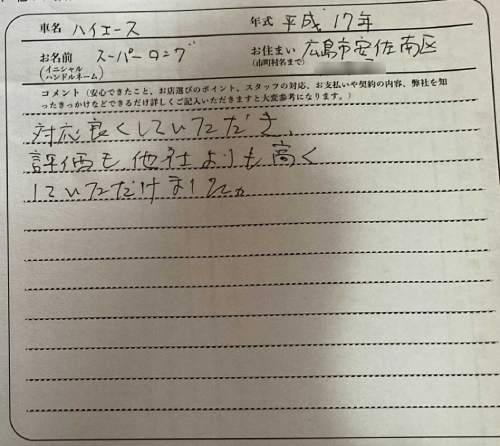 車名 ハイエース 年式 平成 17年
お名前 スーパーロング お住まい 広島市安佐南区
(イニシャル ハンドルネーム) (市町村名まで)
コメント(安心できたこと、お店選びのポイント、スタッフの対応、お支払いや契約の内容、弊社を知
ったきっかけなどできるだけ詳しくご記入いただきますと大変参考になります。)
対応良くしていただき、
評価も他社よりも高く
していただけました。